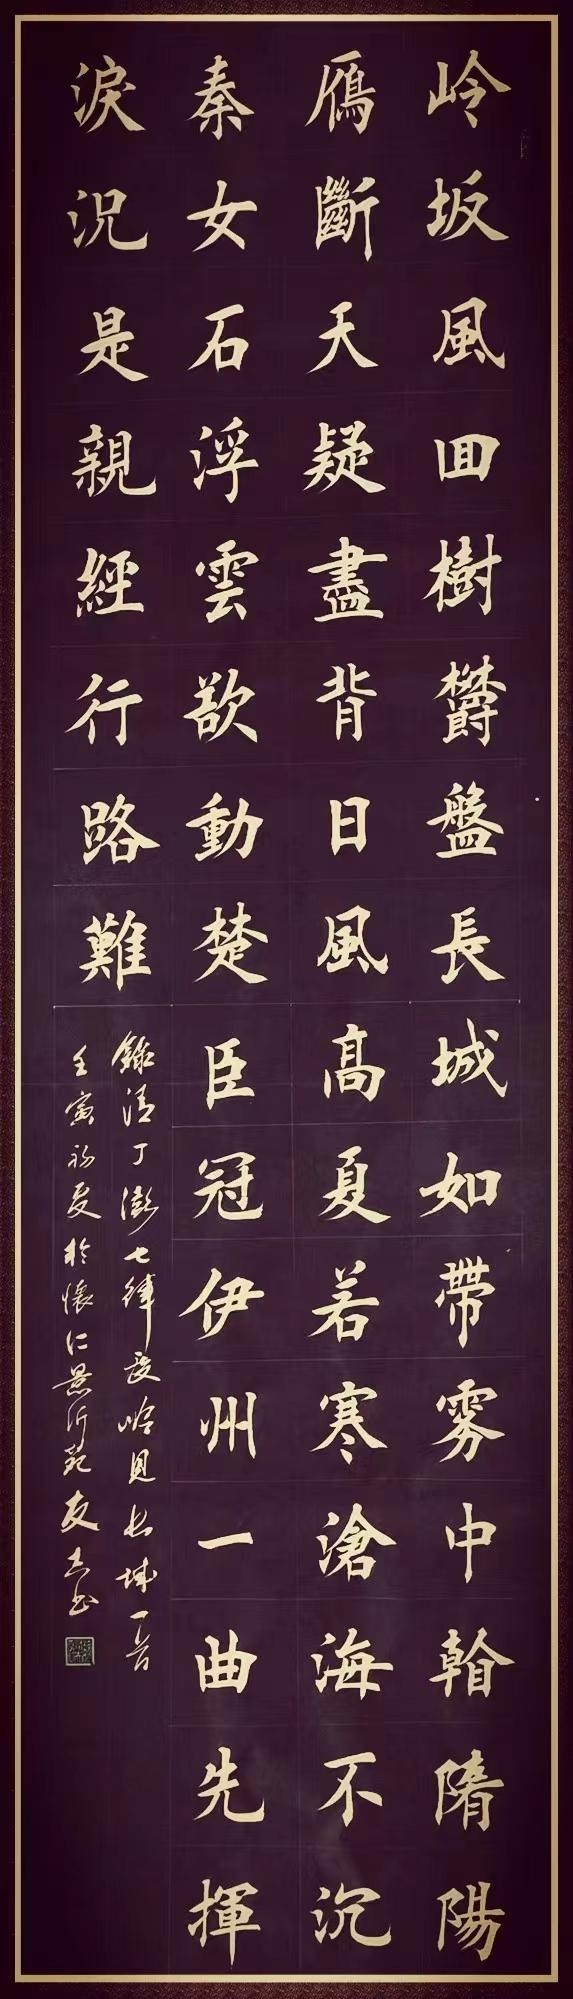 岭坂風回樹欝盤長城如帶雾中翰隋陽
鴈斷天疑盡背日風高夏若寒滄海不沉
秦女石浮雲欲動楚臣冠伊州一曲先揮
淚況是親經行路難
錄清丁澎七律度岭見長城一首
壬寅初夏於懷仁景沂苑友志书